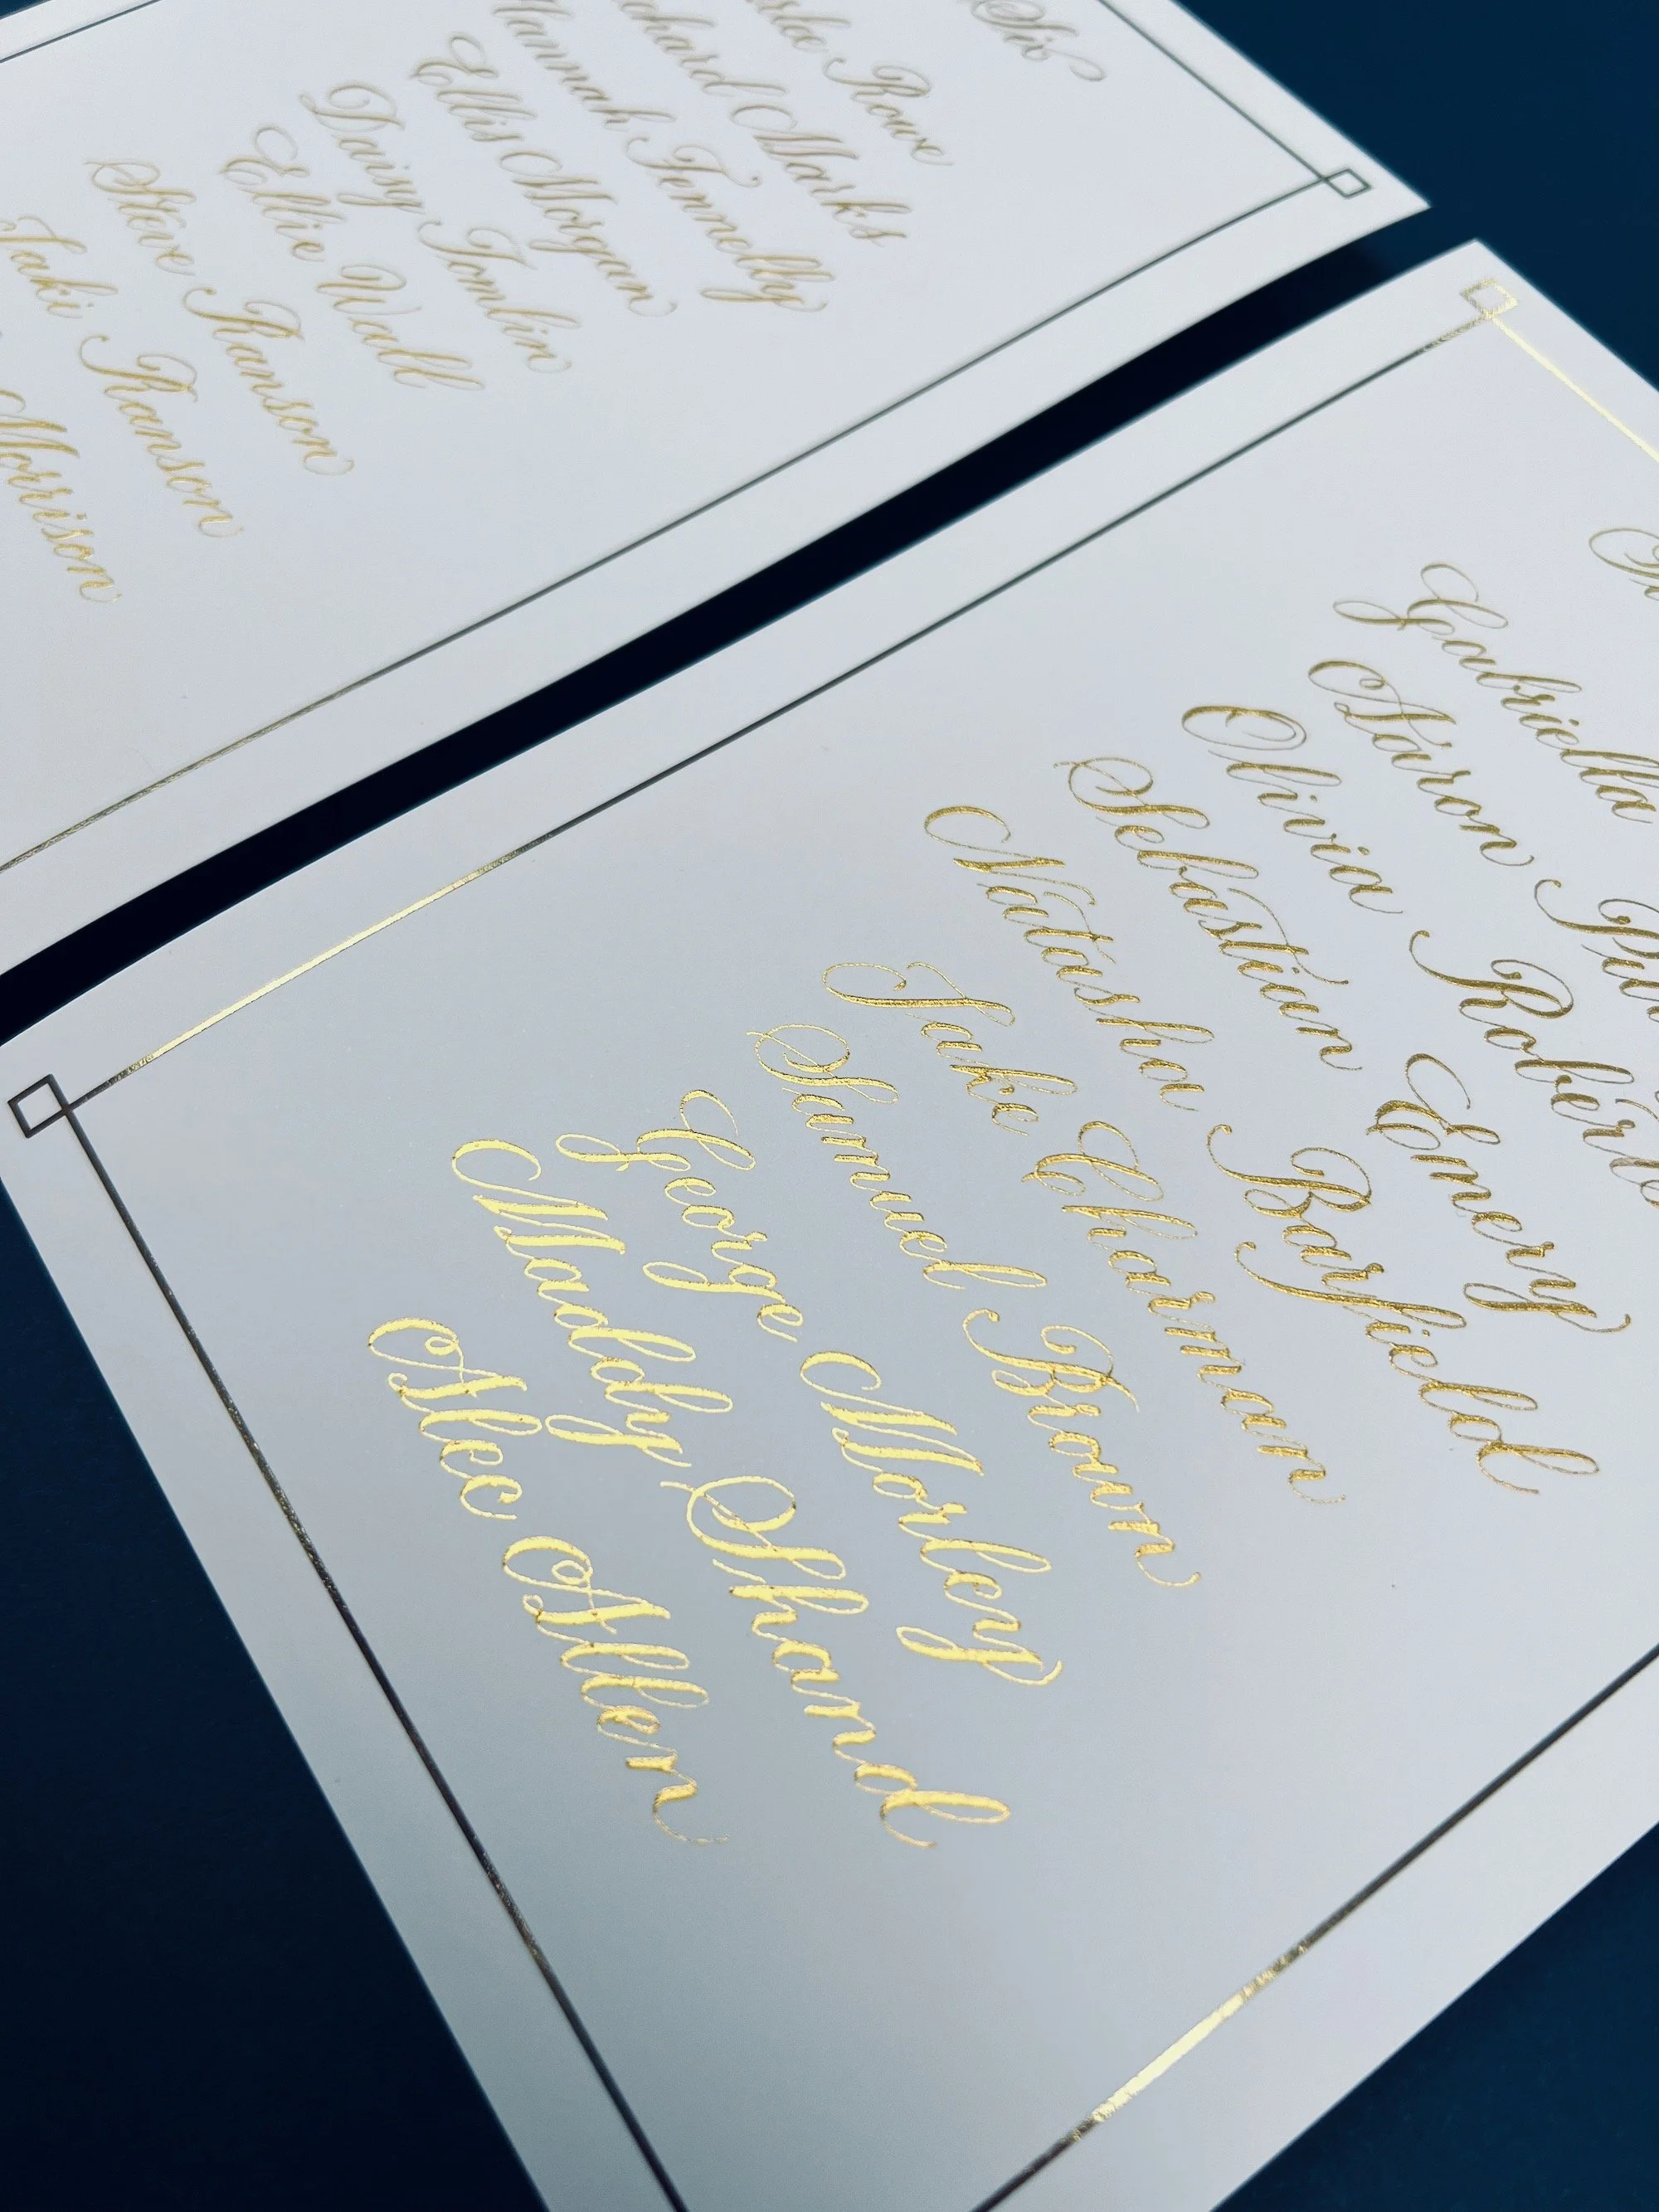 Six
Rowe
Marks
Hannah Fennelly
Ellis Morgan
Daisy Tomlin
Ellie Wall
Steve Ranson
Jaki Ranson
Morrison
Gabriella
Aaron
Olivia Roberts
Sebastian Emery
Natasha Barfield
Jake Charman
Samuel Brown
George Morley
Maddy Shand
Alec Allen